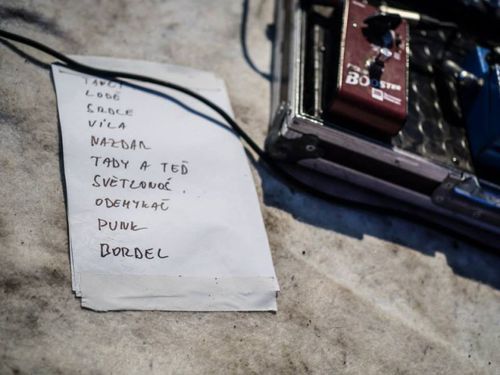 LODĚ
SRDCE
VÍLA
NAZDAR
TADY A TEĎ
SVĚTLONOŠ
ODEMYKAČ
PUNK
BORDEL
BOOSTER